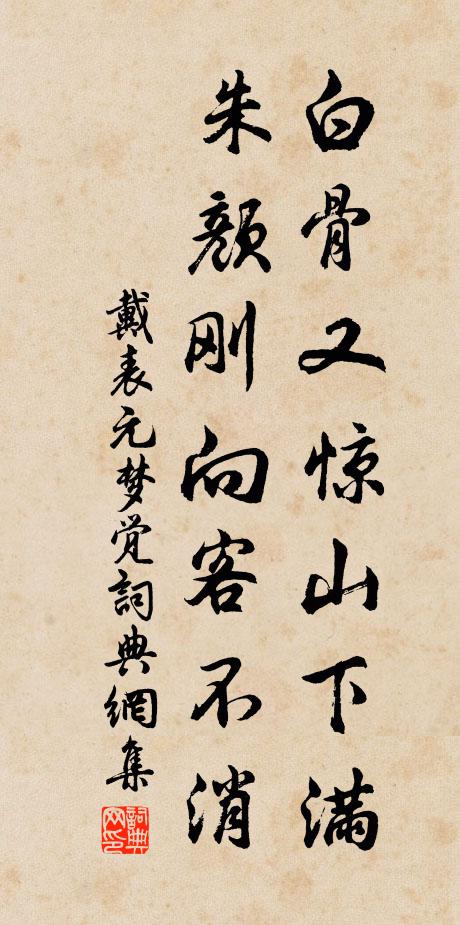 白骨又惊山下满
朱颜刚向客不消
戴表元梦觉詞典網集
詞典网印